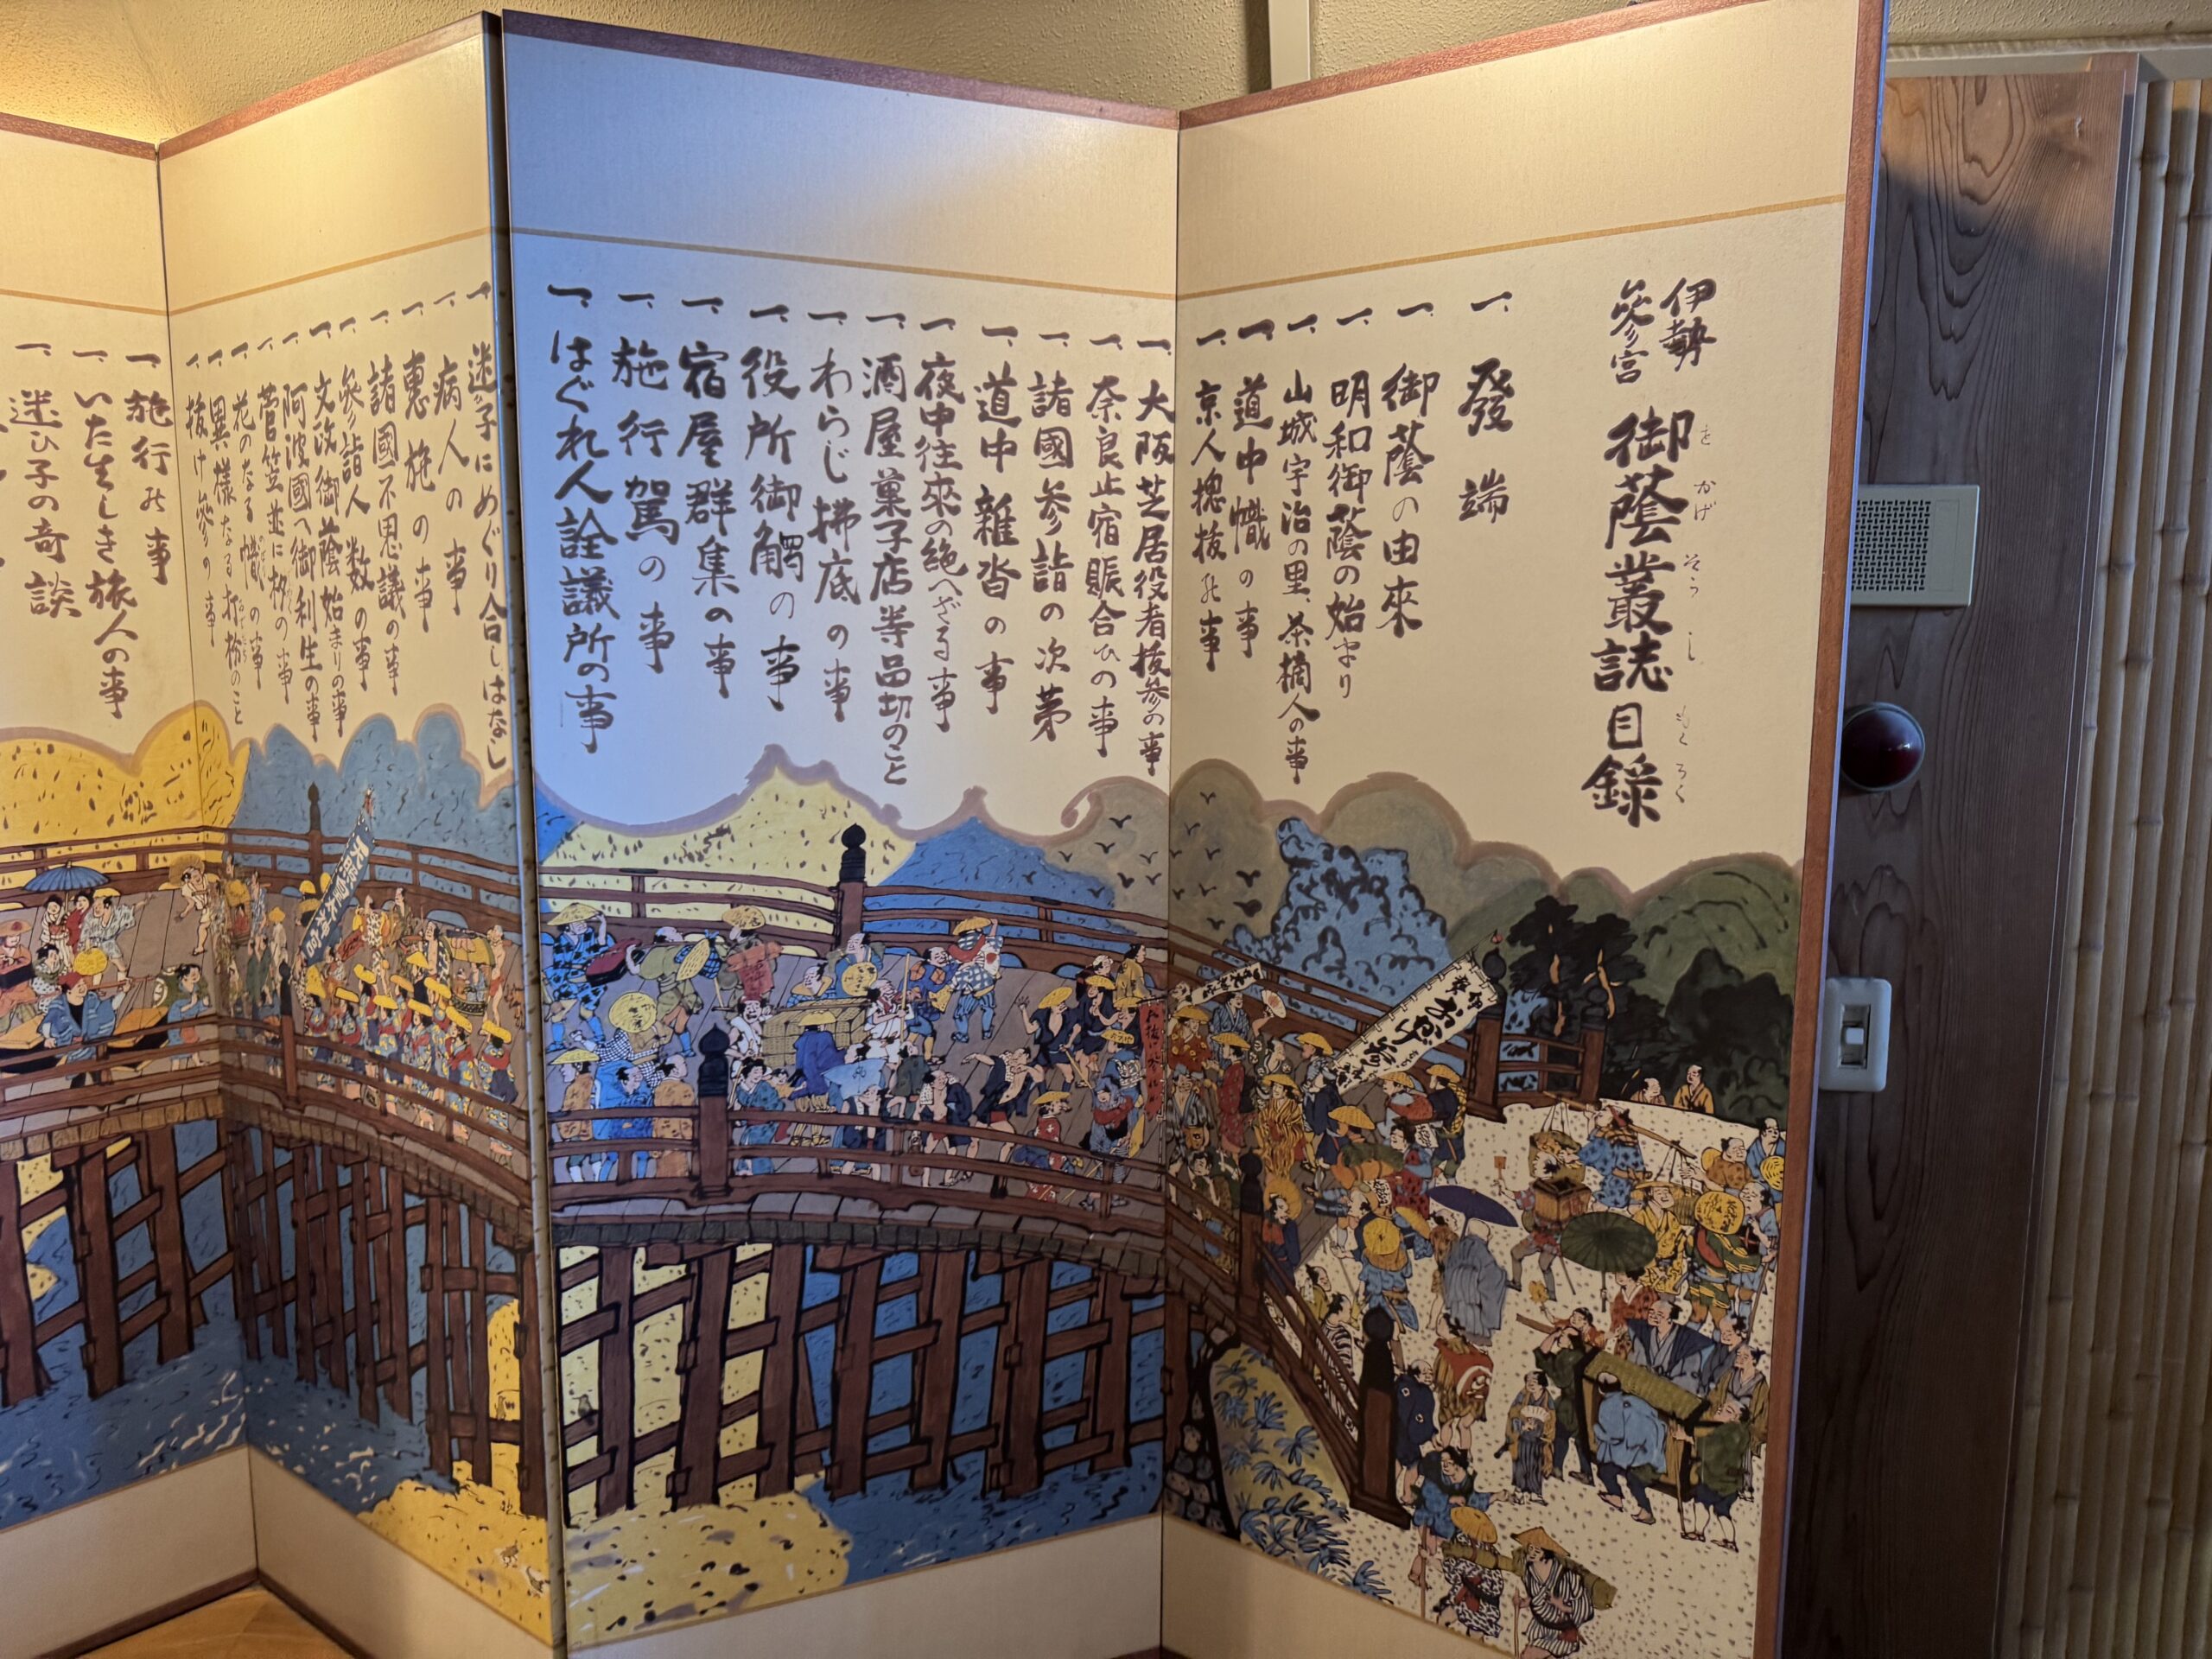 伊勢
參宮
御蔭叢誌目録
をかげそうしもくろく
一、發端
一、御蔭の由來
一、明和御蔭の始まり
一、山城宇治の里、茶摘人の事
一、道中幟の事
一、京人抜の事
一、大阪芝居役者抜參の事
一、奈良止宿賑合ひの事
一、諸國參詣の次第
一、道中雜沓の事
一、夜中往來の絶へざる事
一、酒屋菓子店等品切のこと
一、わらじ拂底の事
一、役所御觸の事
一、宿屋群集の事
一、施行駕の事
一、はぐれ人詮議所の事
一、迷子にめぐり合しはなし
一、病人の事
一、惠施の事
一、諸國不思議の事
一、參詣人数の事
一、文政御蔭始まりの事
一、阿波國へ御利生の事
一、菅笠並に杓の事
一、花のなる幟の事
一、異様なる打扮のこと
一、抜け參の事
一、施行の事
一、いたましき旅人の事
一、迷ひ子の奇談
おかげ參